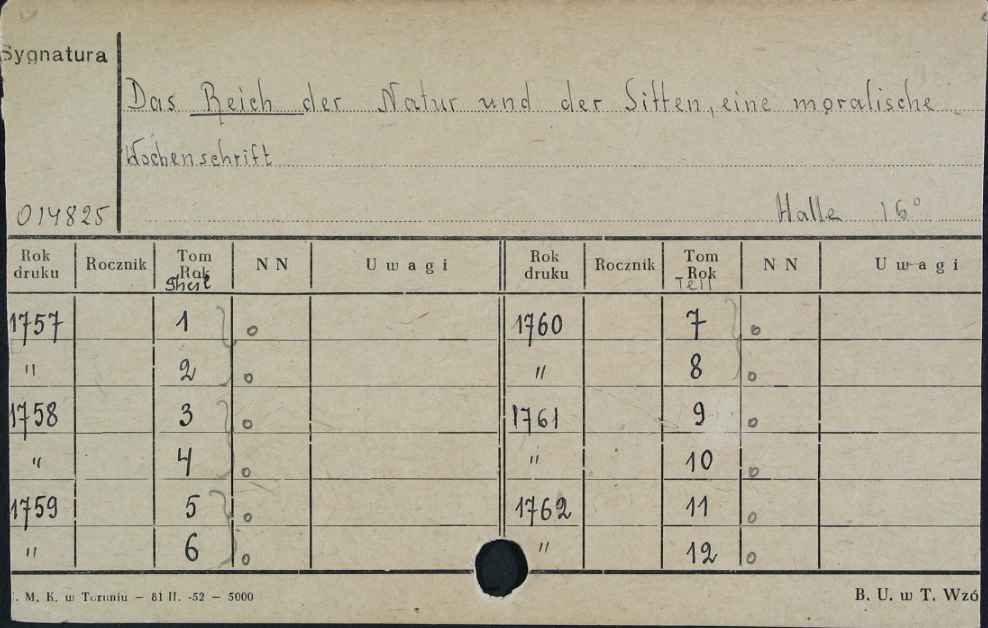 Sygnatura
Das Reich der Natur und der Sitten, eine moralische
Wochenschrift
014825 Halle 16°
Rok druku Rocznik Tom Rok N N Uwagi Rok druku Rocznik Tom Rok N N Uwagi
Teil
1757 1 o 1760 7 o
" 2 o " 8 o
1758 3 o 1761 9 o
" 4 o " 10 o
1759 5 o 1762 11 o
" 6 o " 12 o
. M. K. w Toruniu — 81 II. -52 — 5000 B. U. w T. Wzó